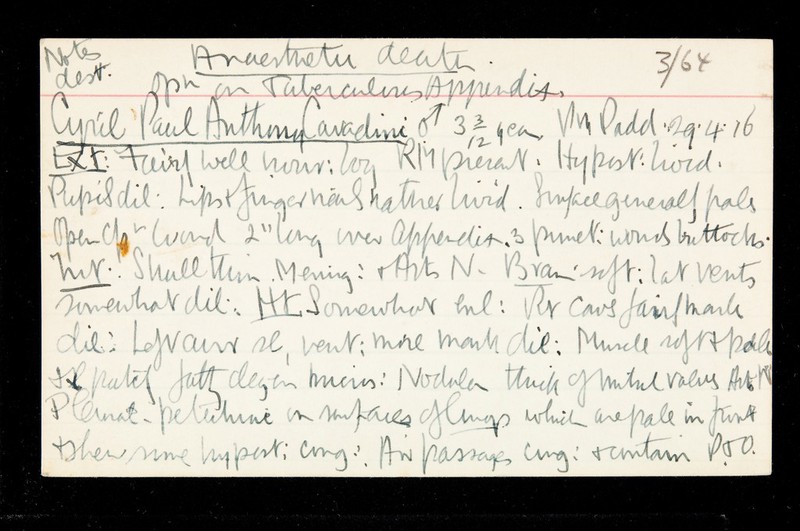 Notes dest. Anaesthetic death. 3/64
opn on Tuberculous Appendix.
Cyril Paul Anthony Cavadini of 3 3/12 years PM Padd. 29.4.16
Ext: Fairly well nour: boy RM present. Hypost: livid.
Pupils dil: Lips & finger nails rather livid. Surface generally pale
open opn wound 2" long over appendix. 3 punct: wounds buttocks.
Int: Skull thin. Mening: & Arts N. Brain soft: lat vents
somewhat dil: Ht Somewhat enl: Rt cavs fairly mark
dil: Left aur sl, vent: more mark dil: Muscle soft & pale
& patchy fatty degen micros: Nodular thick of mitral valves Art N
Pleurae - petechiae on surfaces of lungs which are pale in front
& shew some hypost: cong: Air passages cong: & contain